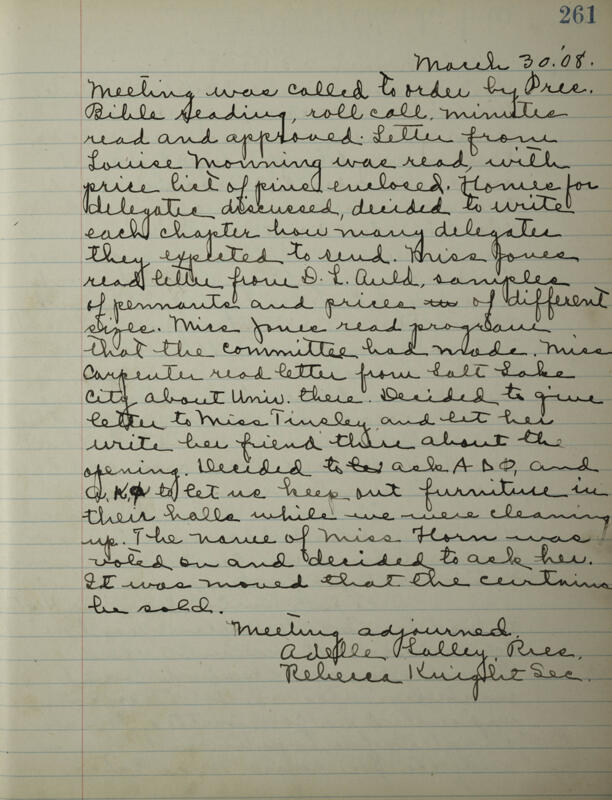 261
March 30.'08.
Meeting was called to order by Pres.
Bible reading, roll call, minutes
read and approved. Letter from
Louise Monning was read, with
price list of pins enclosed. Homes for
delegates discussed, decided to write
each chapter how many delegates
they expected to send. Miss Jones
read letter from D. L. Auld, samples
of pennants and prices of different
sizes. Miss Jones read program
that the committee had made. Miss
Carpenter read letter from Salt Lake
City about Univ. there. Decided to give
letter to Miss Tinsley and let her
write her friend there about the
opening. Decided to ask A Δ Φ, and
to let us keep out furniture in
their halls while we were cleaning
up. The name of Miss Horn was
voted on and decided to ask her.
It was moved that the curtains
be sold.
Meeting adjourned.
Adelle Lalley, Pres.
Rebecca Knight Sec.